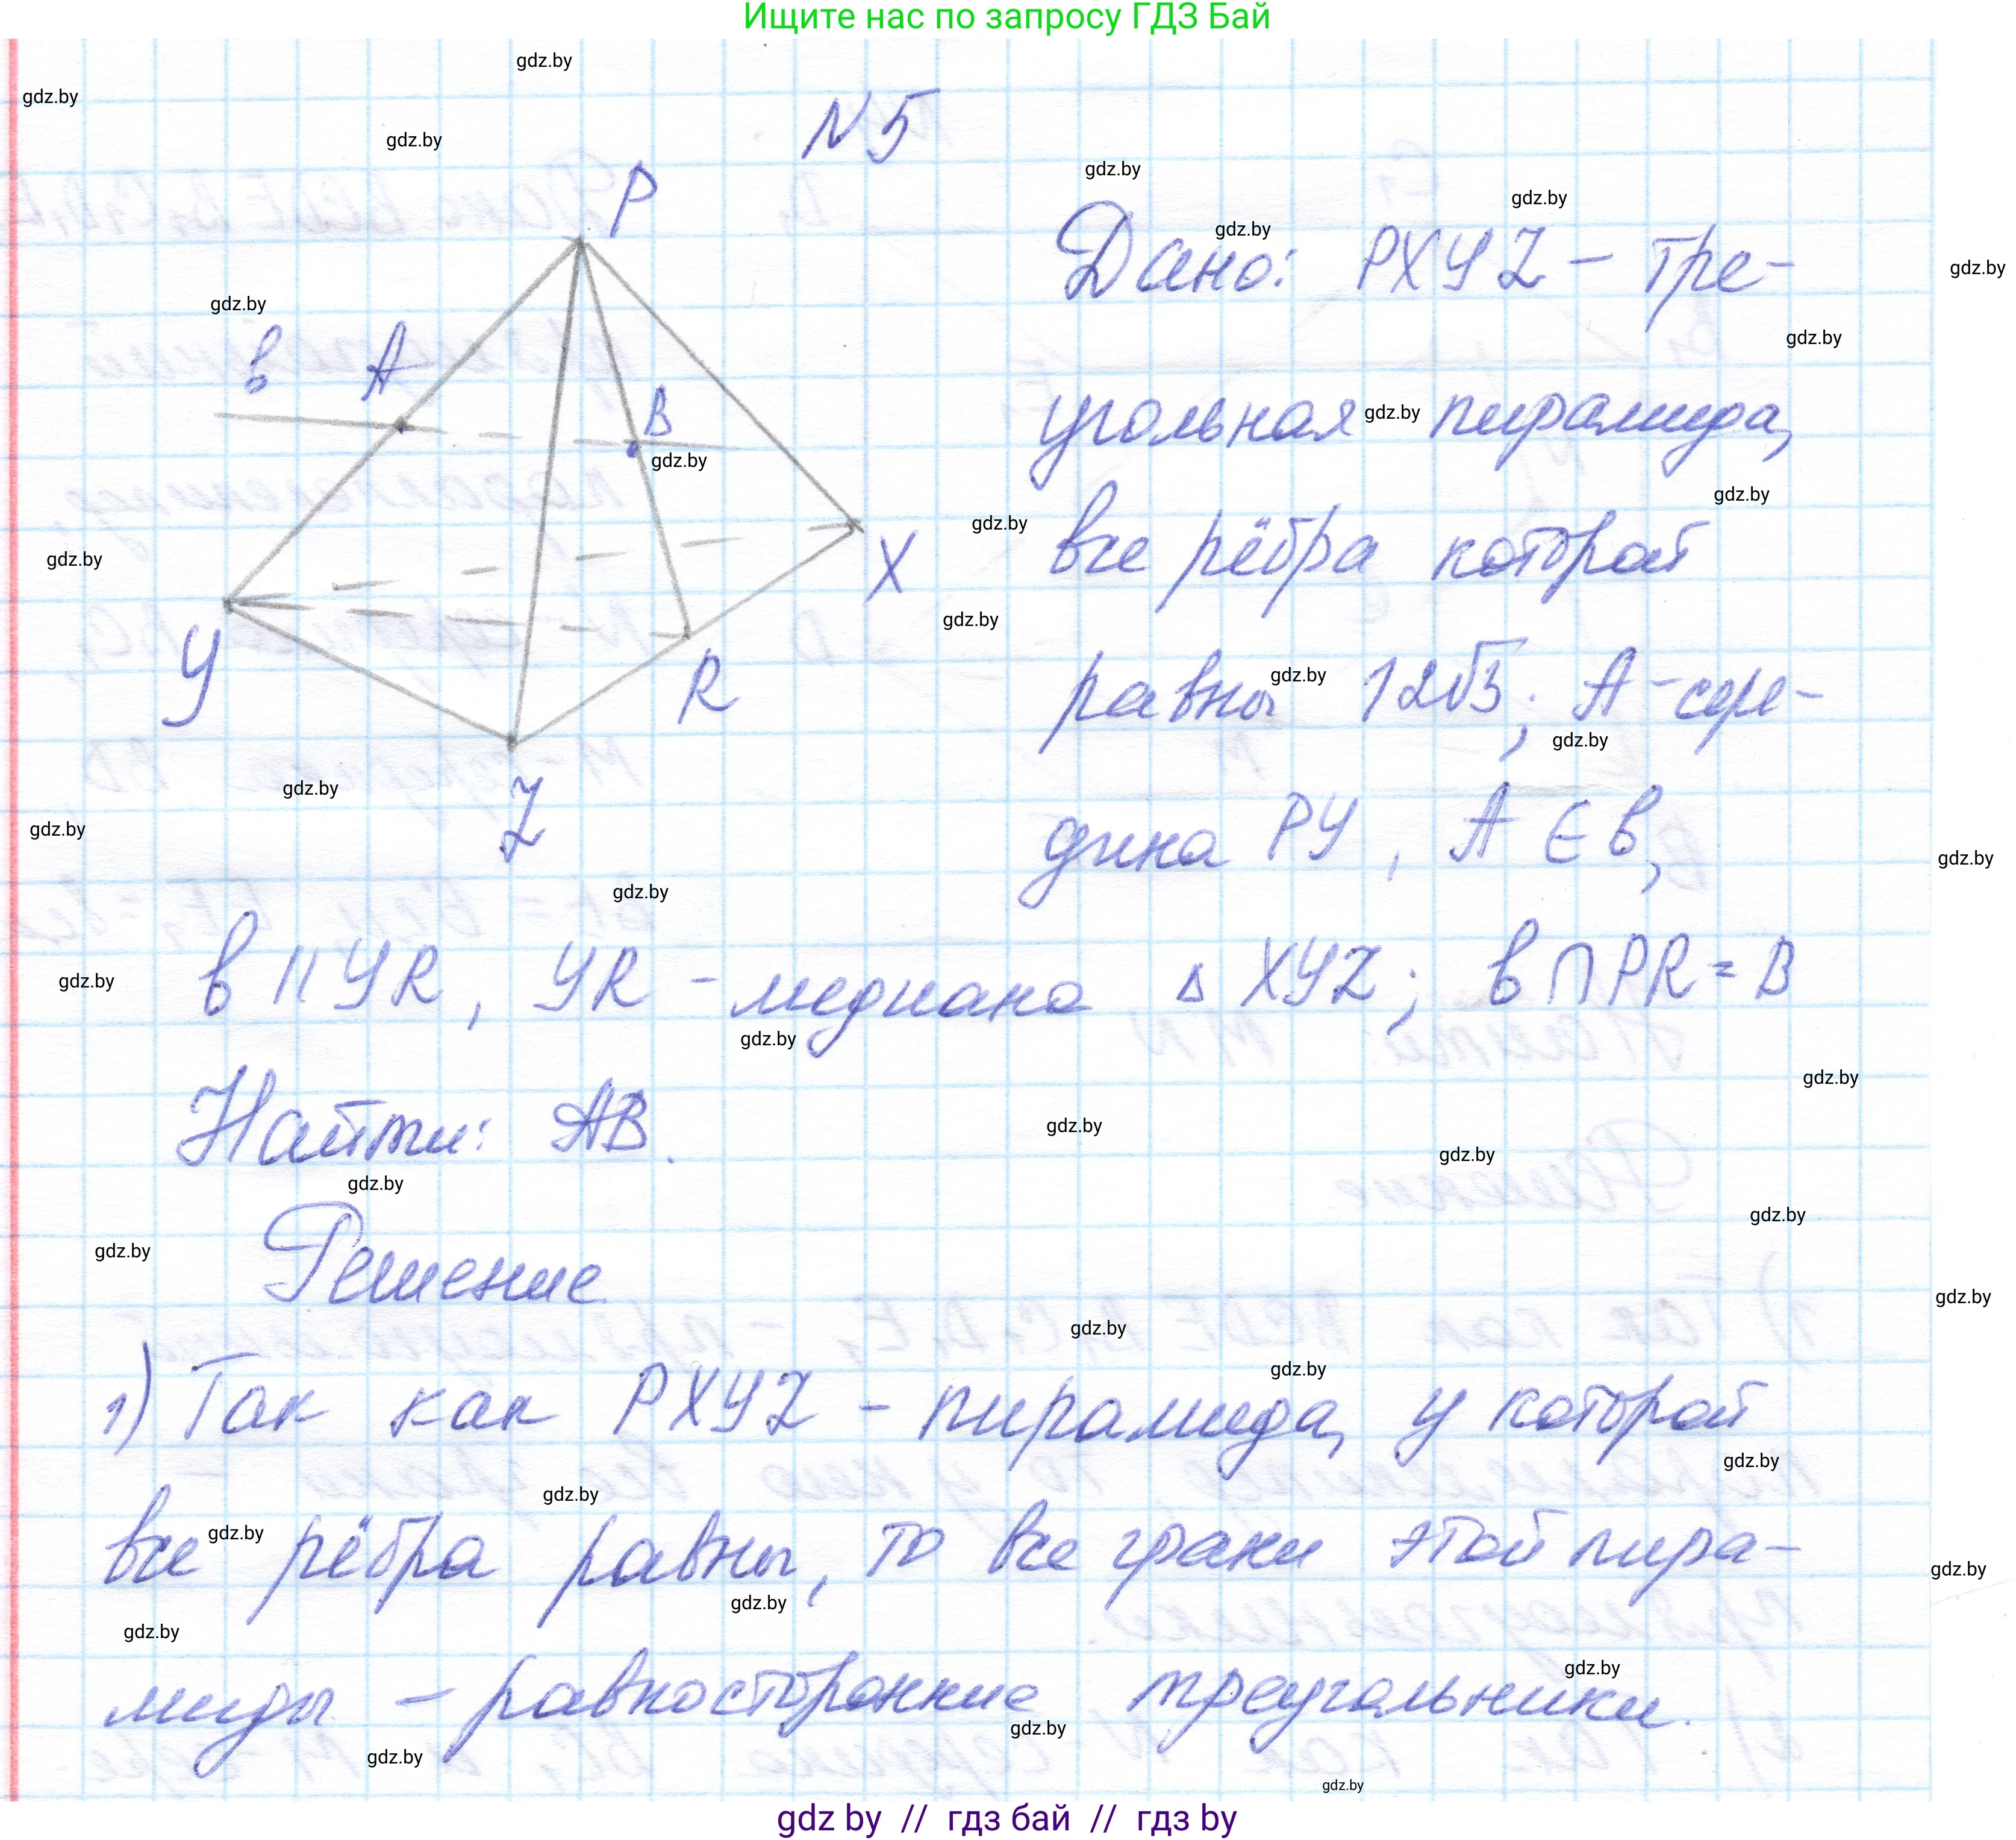 Ищите нас по запросу ГДЗ Бай
N5
P
Дано: PXYZ – тре-
в A
B
угольная пирамида,
все рёбра которой
X
Y
R
равны 12√3; A – сере-
Z
дина PY, A ∈ в,
в || YR, YR – медиана △ XYZ; в ∩ PR = B
Найти: AB.
Решение
1) Так как PXYZ – пирамида, у которой
все рёбра равны, то все грани этой пира-
миды – равносторонние треугольники.
gdz.by
gdz by // гдз бай // гдз by